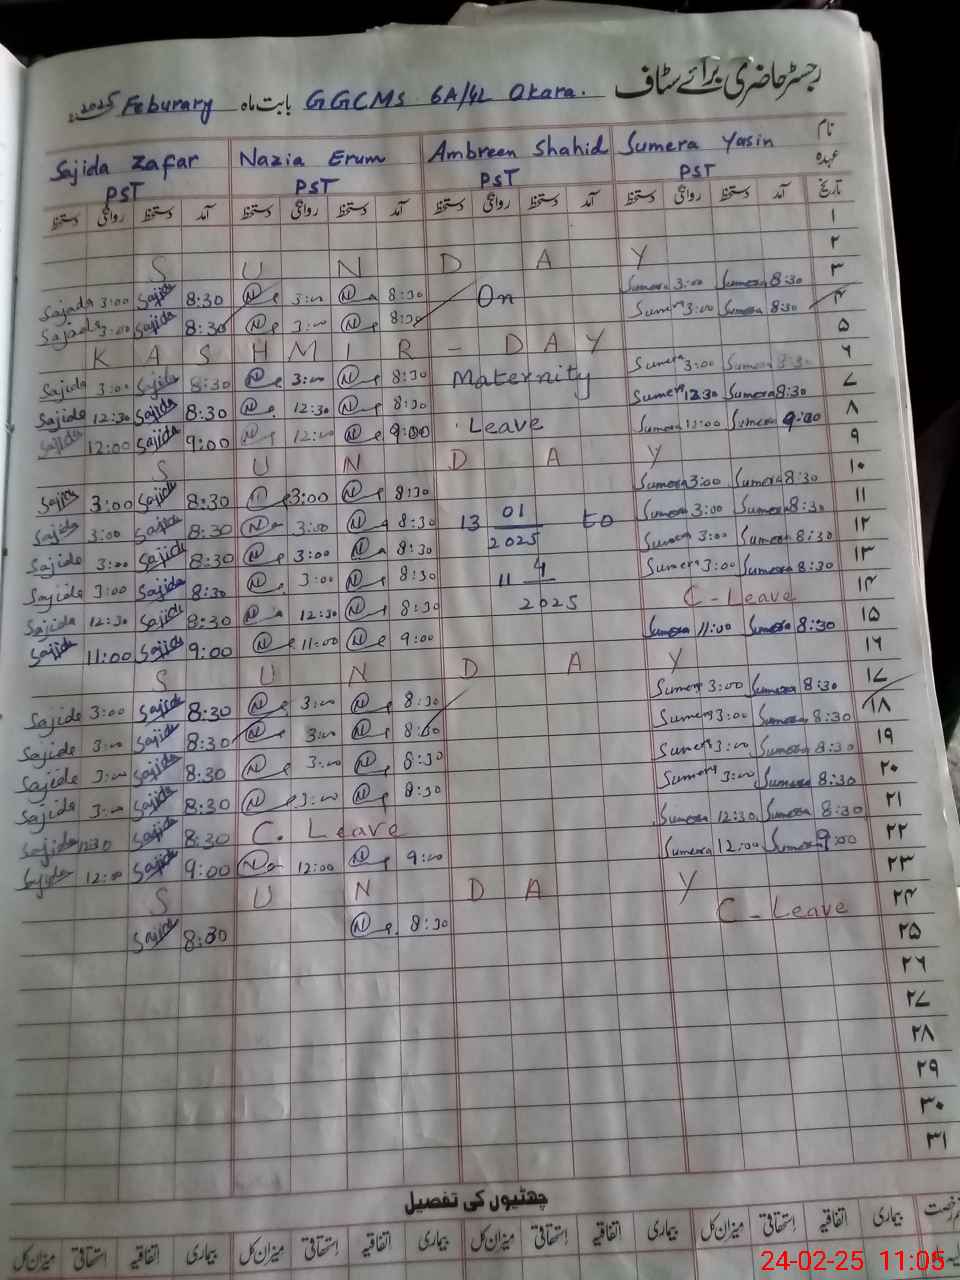 رجسٹر حاضری برائے سٹاف
2025 Feburary بابت ماہ GGCMS 6A/4L Okara.
Sajida Zafar Nazia Erum Ambreen Shahid Sumera Yasin نام
PST PST PST PST عہدہ
دستخط روانگی دستخط آمد دستخط روانگی دستخط آمد دستخط روانگی دستخط آمد دستخط روانگی دستخط آمد تاریخ
۱
S U N D A Y ۲
Sajada 3:00 Sajida 8:30 N 3:00 N 8:30 On Sumera 3:00 Sumera 8:30 ۳
Sajada 3:00 Sajida 8:30 N 3:00 N 8:30 Sumera 3:00 Sumera 8:30 ۴
K A S H M I R - D A Y ۵
Sajida 3:00 Sajida 8:30 N 3:00 N 8:30 Maternity Sumera 3:00 Sumera 8:30 ۶
Sajida 12:30 Sajida 8:30 N 12:30 N 8:30 Sumera 12:30 Sumera 8:30 ۷
Sajida 12:00 Sajida 9:00 N 12:00 N 9:00 Leave Sumera 11:00 Sumera 9:00 ۸
S U N D A Y ۹
Sajida 3:00 Sajida 8:30 N 3:00 N 8:30 Sumera 3:00 Sumera 8:30 ۱۰
Sajida 3:00 Sajida 8:30 N 3:00 N 8:30 13 01 2025 to Sumera 3:00 Sumera 8:30 ۱۱
Sajida 3:00 Sajida 8:30 N 3:00 N 8:30 Sumera 3:00 Sumera 8:30 ۱۲
Sajida 3:00 Sajida 8:30 N 3:00 N 8:30 11 4 2025 Sumera 3:00 Sumera 8:30 ۱۳
Sajida 12:30 Sajida 8:30 N 12:30 N 8:30 C - Leave ۱۴
Sajida 11:00 Sajida 9:00 N 11:00 N 9:00 Sumera 11:00 Sumera 8:30 ۱۵
S U N D A Y ۱۶
Sajida 3:00 Sajida 8:30 N 3:00 N 8:30 Sumera 3:00 Sumera 8:30 ۱۷
Sajida 3:00 Sajida 8:30 N 3:00 N 8:30 Sumera 3:00 Sumera 8:30 ۱۸
Sajida 3:00 Sajida 8:30 N 3:00 N 8:30 Sumera 3:00 Sumera 8:30 ۱۹
Sajida 3:00 Sajida 8:30 N 3:00 N 8:30 Sumera 3:00 Sumera 8:30 ۲۰
Sajida 12:30 Sajida 8:30 C. Leave Sumera 12:30 Sumera 8:30 ۲۱
Sajida 12:00 Sajida 9:00 N 12:00 N 9:00 Sumera 12:00 Sumera 9:00 ۲۲
S U N D A Y ۲۳
Sajida 8:30 N 8:30 C - Leave ۲۴
۲۵
۲۶
۲۷
۲۸
۲۹
۳۰
۳۱
چھٹیوں کی تفصیل
میزان کل استحقاقی اتفاقیہ بیماری میزان کل استحقاقی اتفاقیہ بیماری میزان کل استحقاقی اتفاقیہ بیماری میزان کل استحقاقی اتفاقیہ بیماری
24-02-25 11:05